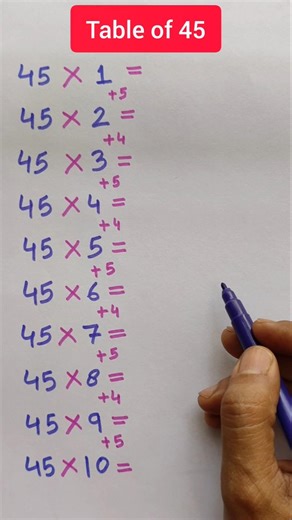 Table of 45
45 × 1 =
+5
45 × 2 =
+4
45 × 3 =
+5
45 × 4 =
+4
45 × 5 =
+5
45 × 6 =
+4
45 × 7 =
+5
45 × 8 =
+4
45 × 9 =
+5
45 × 10 =